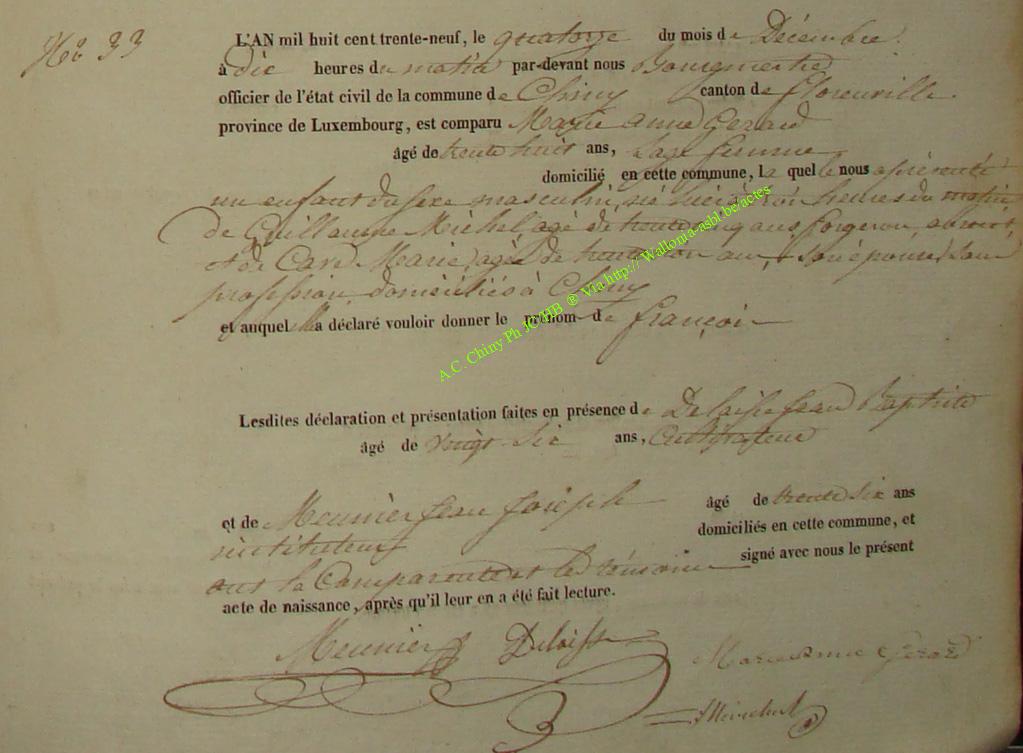 No 33
L'AN mil huit cent trente-neuf, le quatorze du mois de Décembre
à dix heures du matin par-devant nous Bourgmestre
officier de l'état civil de la commune de Chiny canton de florenville
province de Luxembourg, est comparu Marie Anne Gerard
âgé de trente huit ans, sage femme
domicilié en cette commune, la quelle nous a présenté
un enfant du sexe masculin, né heures du matin
de Guillaume Michel, agé de trente cinq ans forgeron, absent,
et de Marie, agée de ans, son épouse, sans
profession domiciliés à Chiny
et auquel elle a déclaré vouloir donner le prénom de françois
Lesdites déclaration et présentation faites en présence de Delaisse Jean Baptiste
âgé de vingt six ans, Cultivateur
et de Meunier Jean Joseph âgé de trente six ans
instituteur domiciliés en cette commune, et
ont la Comparente et les témoins signé avec nous le présent
acte de naissance, après qu'il leur en a été fait lecture.
Meunier Delaisse
Marie Anne Gérard
A.C. Chiny Ph JC HB ® Via http:// Wallonia-asbl.be/actes